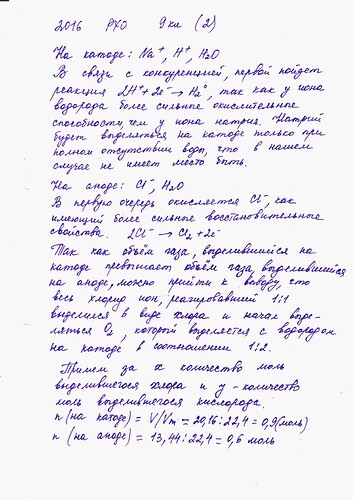 2016 РХО 9 кл (2)
На катоде: Na⁺, H⁺, H₂O
В связи с конкуренцией, первой пойдет
реакция 2H⁺ + 2e⁻ → H₂⁰, так как у иона
водорода более сильные окислительные
способности, чем у иона натрия. Натрий
будет выделяться на катоде только при
полном отсутствии воды, что в нашем
случае не имеет место быть.
На аноде: Cl⁻, H₂O
В первую очередь окисляется Cl⁻, как
имеющий более сильные восстановительные
свойства. 2Cl⁻ → Cl₂ + 2e⁻
Так как объём газа, выделившийся на
катоде превышает объём газа, выделившийся
на аноде, можно прийти к выводу, что
весь хлорид ион, реагировавший 1:1
выделился в виде хлора и начал выде-
ляться O₂, который выделяется с водородом
на катоде в соотношении 1:2.
Примем за x количество моль
выделившегося хлора и y - количество
моль выделившегося кислорода.
n (на катоде) = V/Vm = 20,16 : 22,4 = 0,9 (моль)
n (на аноде) = 13,44 : 22,4 = 0,6 моль